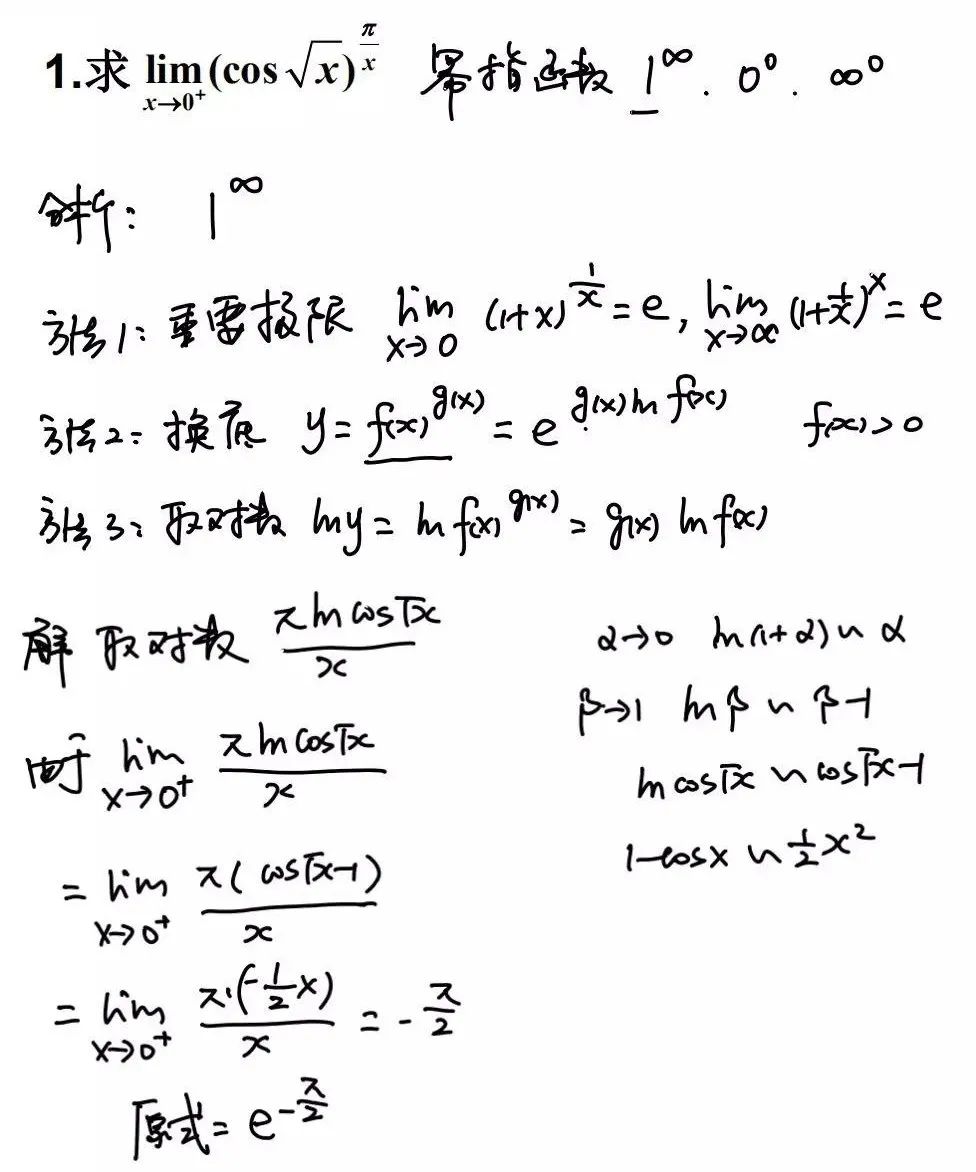 1.求 lim_{x→0⁺}(cos √x)^{π/x} 幂指函数 1^∞. 0^0. ∞^0
分析: 1^∞
方法1: 重要极限 lim_{x→0} (1+x)^{1/x} = e, lim_{x→∞} (1+1/x)^x = e
方法2: 换底 y = f(x)^{g(x)} = e^{g(x) ln f(x)} f(x)>0
方法3: 取对数 lny = ln f(x)^{g(x)} = g(x) ln f(x)
解 取对数 π ln cos√x / x
α→0 ln(1+α) ~ α
β→1 lnβ ~ β-1
由于 lim_{x→0⁺} π ln cos√x / x
ln cos√x ~ cos√x-1
1-cosx ~ 1/2 x²
= lim_{x→0⁺} π(cos√x-1) / x
= lim_{x→0⁺} π·(-1/2 x) / x = -π/2
原式 = e^{-π/2}